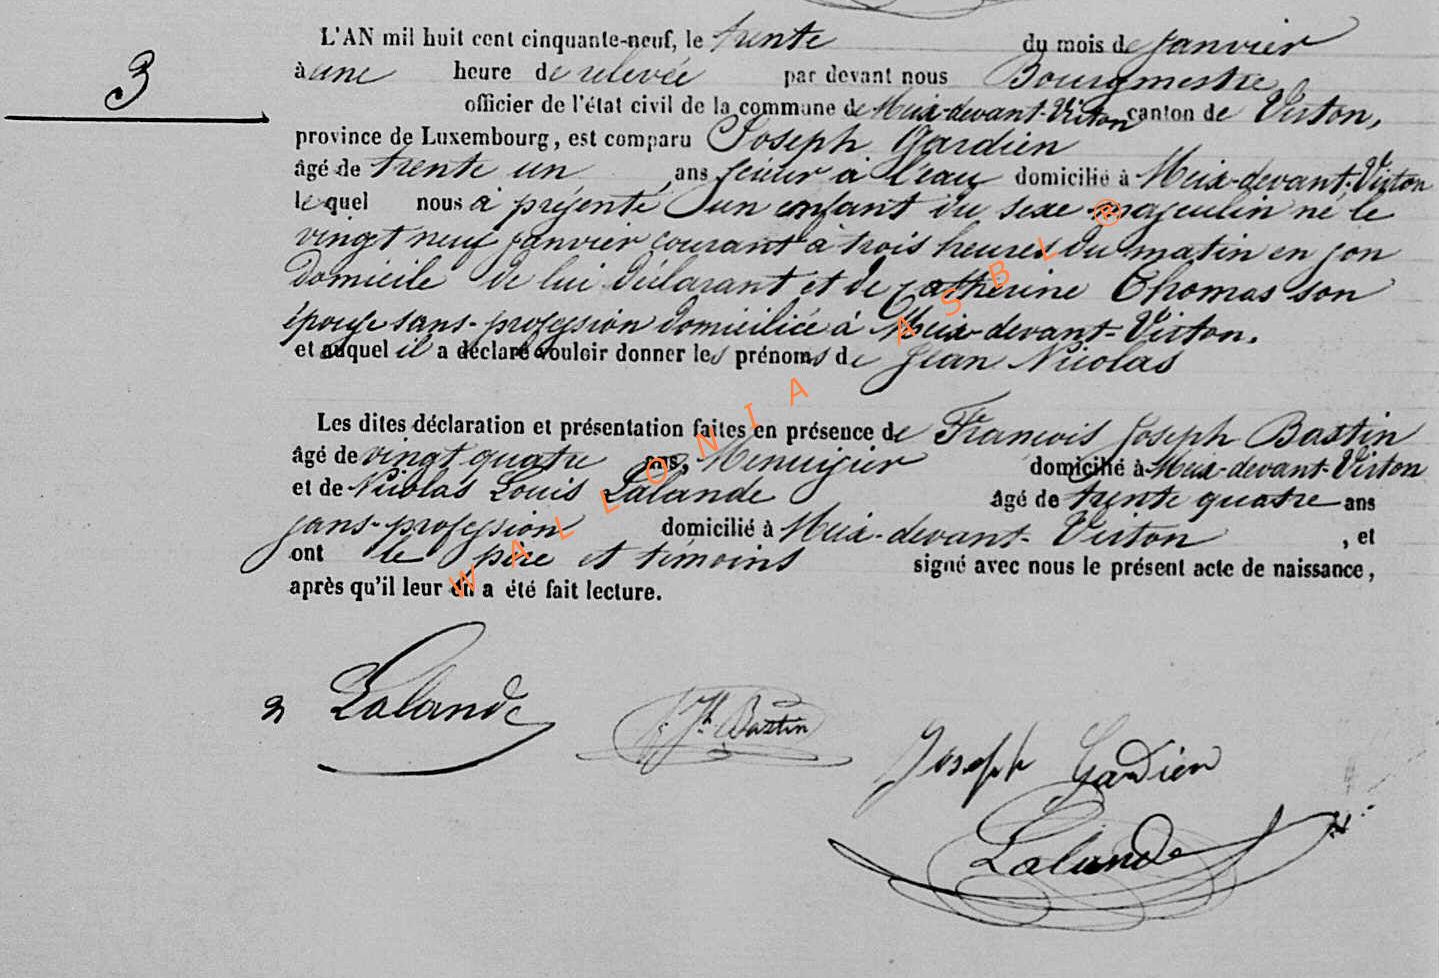 L'AN mil huit cent cinquante-neuf, le trente du mois de janvier
3
à une heure de relevée par devant nous Bourgmestre
officier de l'état civil de la commune de Meix-devant-Virton canton de Virton,
province de Luxembourg, est comparu Joseph Gardien
âgé de trente un ans, scieur à l'eau domicilié à Meix-devant-Virton
lequel nous a présenté un enfant du sexe masculin né le
vingt neuf janvier courant à trois heures du matin en son
domicile de lui déclarant et de Catherine Thomas son
épouse sans-profession domiciliée à Meix-devant-Virton.
et auquel il a déclaré vouloir donner les prénoms de Jean Nicolas
Les dites déclaration et présentation faites en présence de François Joseph Bastin
âgé de vingt quatre ans, Menuisier domicilié à Meix-devant-Virton
et de Nicolas Louis Lalande âgé de trente quatre ans
sans-profession domicilié à Meix-devant-Virton, et
ont le père et témoins signé avec nous le présent acte de naissance,
après qu'il leur en a été fait lecture.
WALLONIA ASBL ®
Lalande
Jh Bastin
Joseph Gardien
Lalande